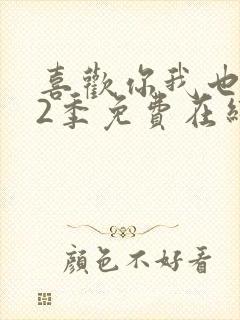 喜歡你我也
2季免費在
顏色不好看